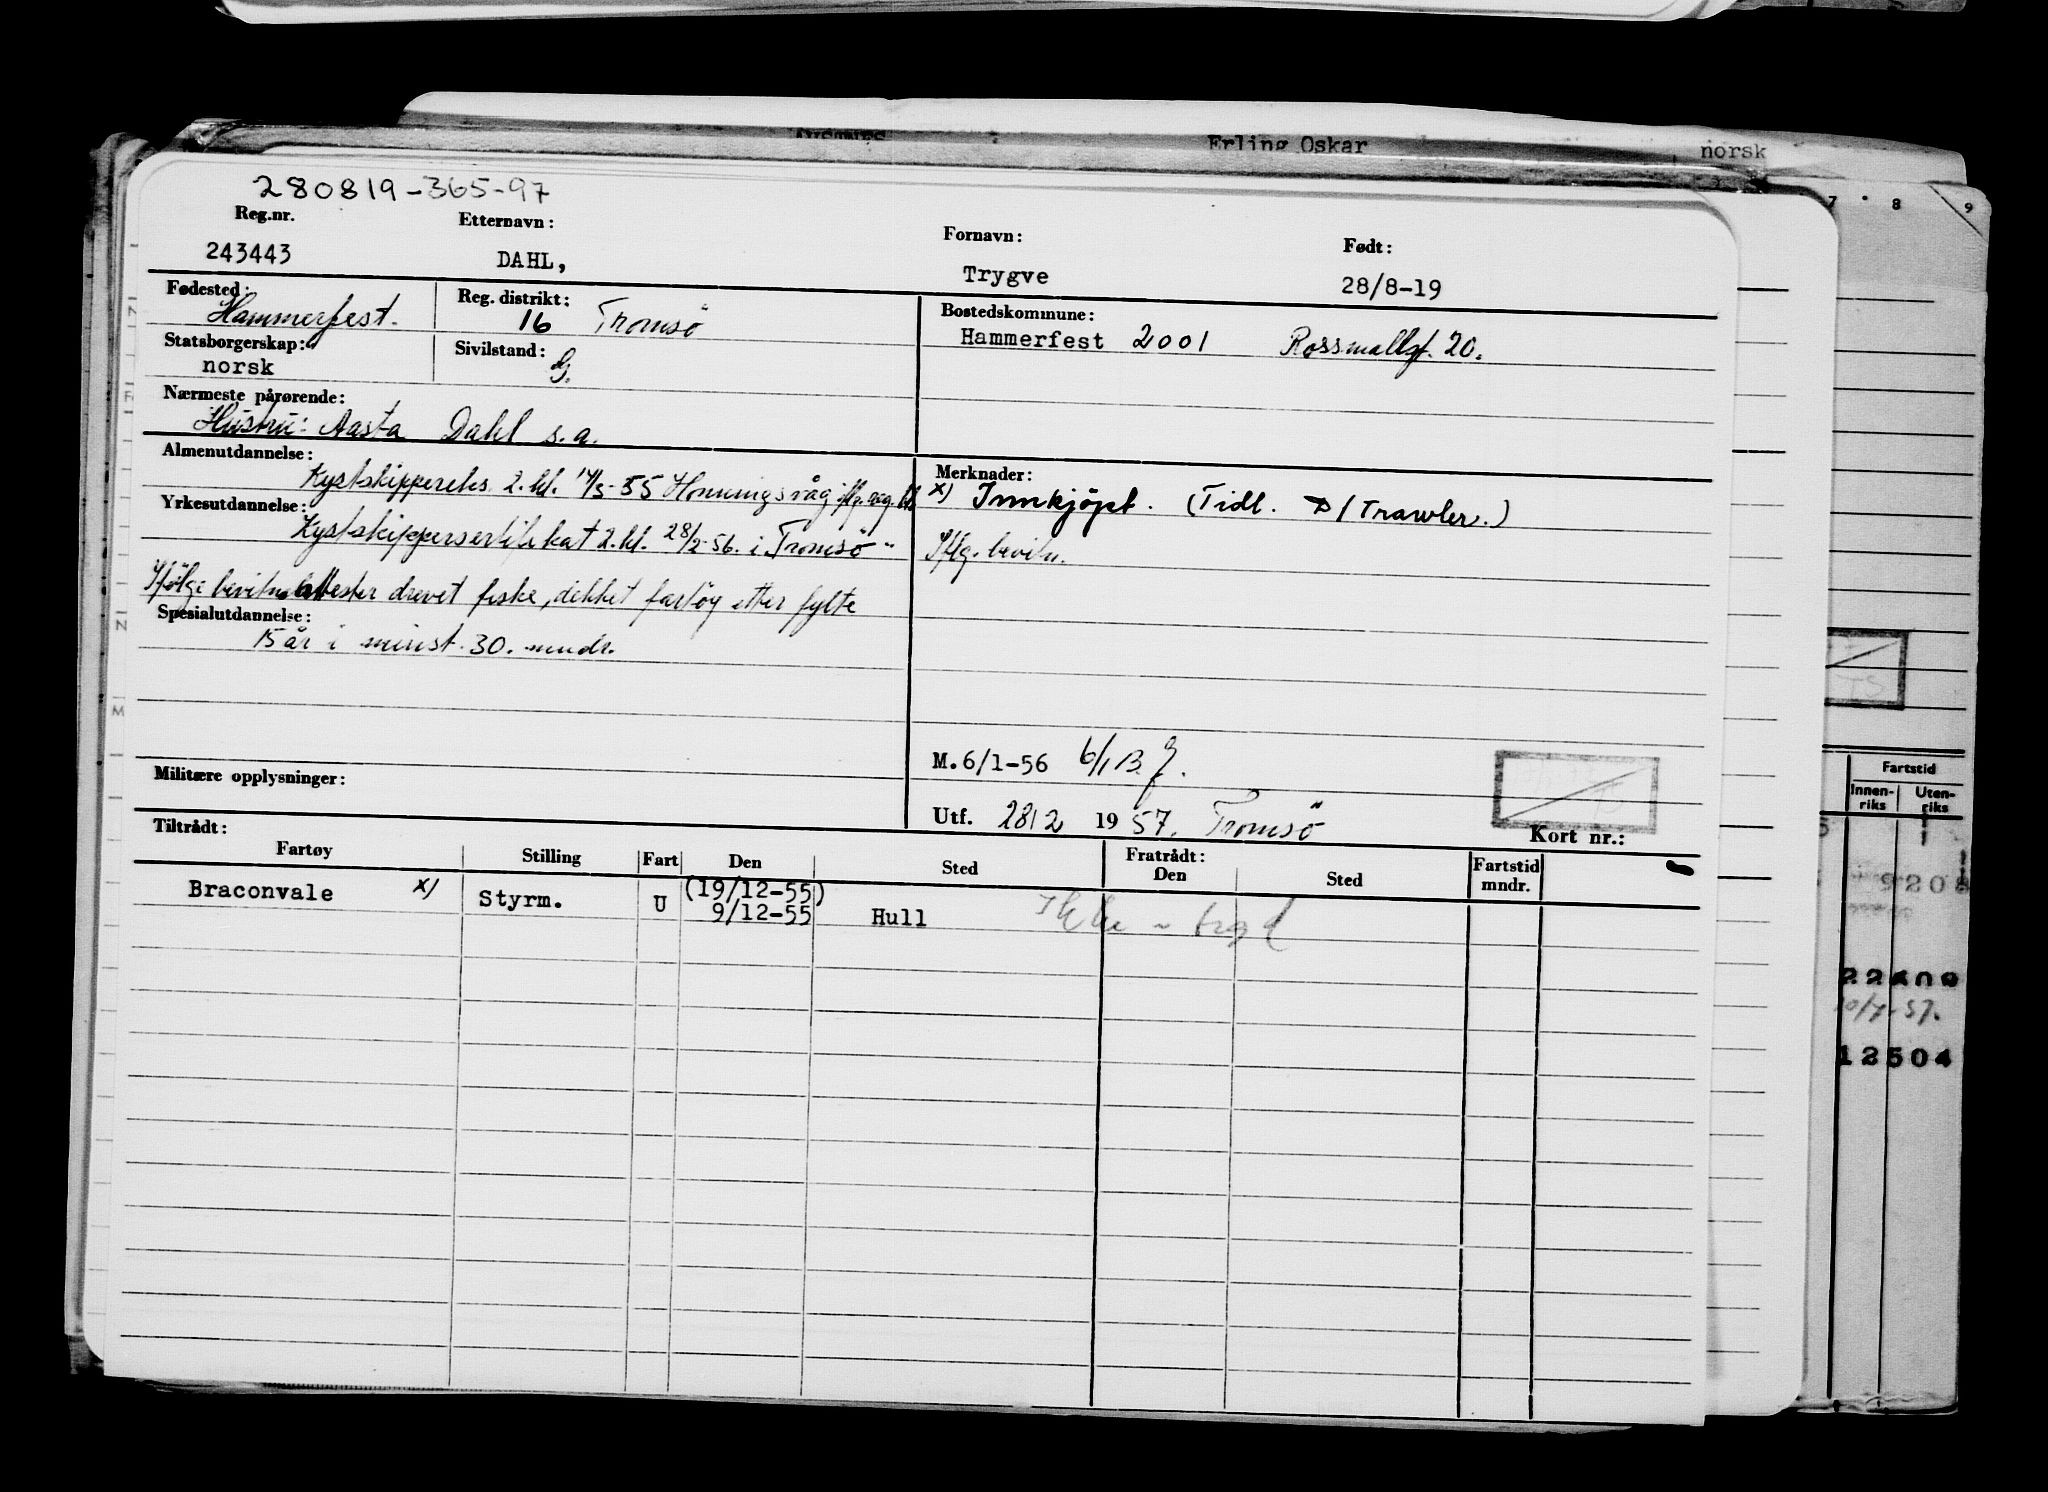 Erling Oskar norsk
7 8 9
280819-365-97
Reg.nr. Etternavn: Fornavn: Født:
243443 DAHL, Trygve 28/8-19
Fødested: Reg. distrikt: Bostedskommune:
Hammerfest. 16 Tromsö Hammerfest 2001 Rossmollgt. 20.
Statsborgerskap: Sivilstand:
norsk G.
Nærmeste pårørende:
Hustru: Aasta Dahl s.a.
Almenutdannelse: Merknader:
Kystskippereks. 2. kl. 17/3-55 Honningsvåg, iflg. reg.
x) Innkjöpt. (Tidl. D/Trawler.)
Yrkesutdannelse:
Kystskippersertifikat 2. kl. 28/2-56. i Tromsö "
Iflg. bevitn.
Ifölge bevitn. attester drevet fiske, dekket fartöy etter fylte
Spesialutdannelse:
15 år i minst 30. mndr.
M.6/1-56 6/1 B.J.
Militære opplysninger:
Utf. 28/2 1957. Tromsö Kort nr.:
Tiltrådt: Fratrådt:
Fartøy Stilling Fart Den Sted Den Sted Fartstid mndr.
Braconvale x) Styrm. U (19/12-55)
9/12-55 Hull
Fartstid
Innen-riks Uten-riks
9208
22609
10/7-57.
12504